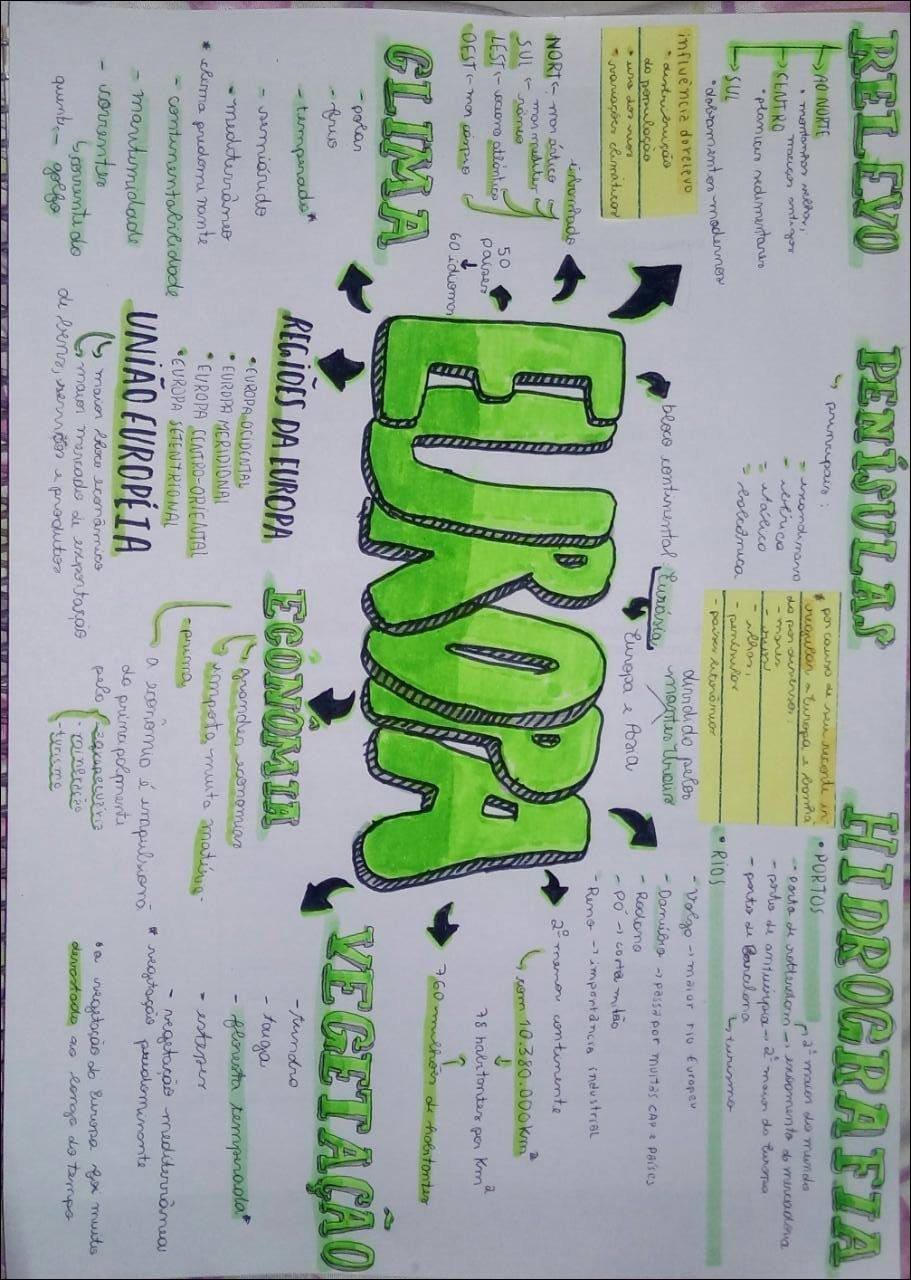 RELEVO
AO NORTE
• montanhas velhas,
maciços antigos
CENTRO
• planícies sedimentares
SUL
• dobramentos modernos
influência do relevo
• distribuição
da população
• uso dos rios
• variações climáticas
NORT ← mar ártico
SUL ← mar mediter
râneo
LEST ← oceano atlântico
OEST ← mar cáspio
PENÍSULAS
principais:
- escandinava
- ibérica
- itálica
- balcânica
* por causa de seu recorte ir
regular a Europa é banha
da por diversos:
- mares
- ilhas;
- penínsulas
HIDROGRAFIA
• PORTOS
2º maior do mundo
- Porto de rotterdam → escoamento de mercadoria
- porto de antuérpia → 2º maior da Europa
- porto de Barcelona
turismo
• RIOS
- Volga → maior rio Europeu
- Danúbio → passa por muitas cap e países
- Rodano
- PÓ → corta milão
- Reno → importância industrial
EUROPA
50
países
60 idiomas
bloco continental Eurásia
Europa e Asia
dividido pelos
montes Urais
2º menor continente
com 10.380.000 Km²
78 habitantes por Km²
760 milhões de habitantes
CLIMA
- polar
- frio
- temperado*
- semiárido
• mediterrâneo
* clima predominante
- continentalidade
- maritimidade
- correntes
corrente do
quente - golfo
REGIÕES DA EUROPA
• EUROPA OCIDENTAL
• EUROPA MERIDIONAL
• EUROPA CENTRO-ORIENTAL
• EUROPA SETENTRIONAL
UNIÃO EUROPÉIA
maior bloco econômico
maior mercado de exportação
de bens, serviços e produtos
ECÔNÔMIA
grandes economias
importa muita matéria-
prima
a ecônomia é impulsiona
da principalmente
pelo
- agropecuária
- turismo
VEGETAÇÃO
- tundra
- taiga
- floresta temperada*
- estepes
- vegetação mediterrânea
* vegetação predominante
• a vegetação da Europa foi muito
devastada ao longo do tempo